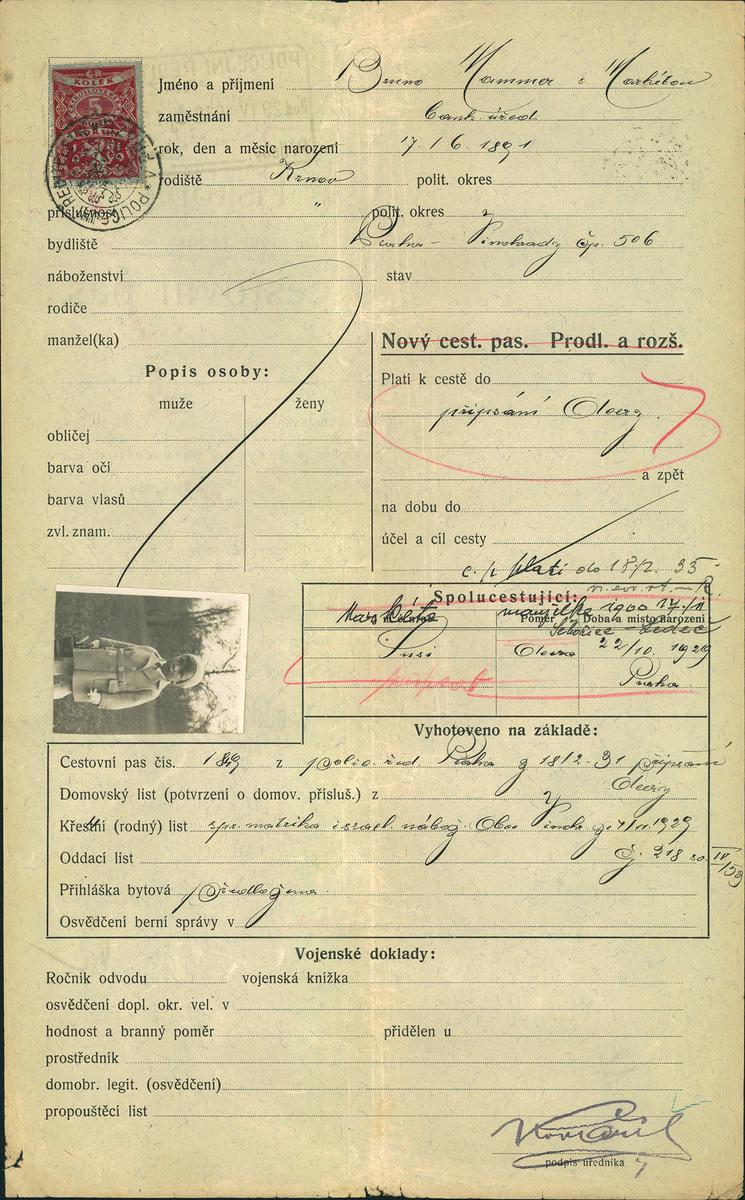 ČR
KOLEK
5
POLICEJNÍ
Jméno a příjmení Bruno Hammer s Markétou
zaměstnání bank. úřed.
rok, den a měsíc narození 17/6. 1891
rodiště Krnov polit. okres
příslušnost " polit. okres
bydliště Praha - Vinohrady čp. 506
náboženství stav
rodiče
manžel(ka)
Nový cest. pas. Prodl. a rozš.
Popis osoby:
Platí k cestě do
muže ženy
připsání dcery
obličej
barva očí
a zpět
barva vlasů
na dobu do
zvl. znam.
účel a cíl cesty
c. p. platí do 18/2. 35
Spolucestující:
Markéta manželka 1900 17/II
Poměr Doba a místo narození
Ledeč
Susi dcera 22/10. 1929
Praha
Vyhotoveno na základě:
Cestovní pas čís. 1849 z polic. řed. Praha z 18/2. 31 připsání
dcery
Domovský list (potvrzení o domov. přísluš.) z
Křestní (rodný) list spr. matrika israel. nábož. Obce Vinohr. z 4/11. 1929
Oddací list č. 218
Přihláška bytová předložena.
Osvědčení berní správy v
Vojenské doklady:
Ročník odvodu vojenská knížka
osvědčení dopl. okr. vel. v
hodnost a branný poměr přidělen u
prostředník
domobr. legit. (osvědčení)
propouštěcí list
podpis úředníka